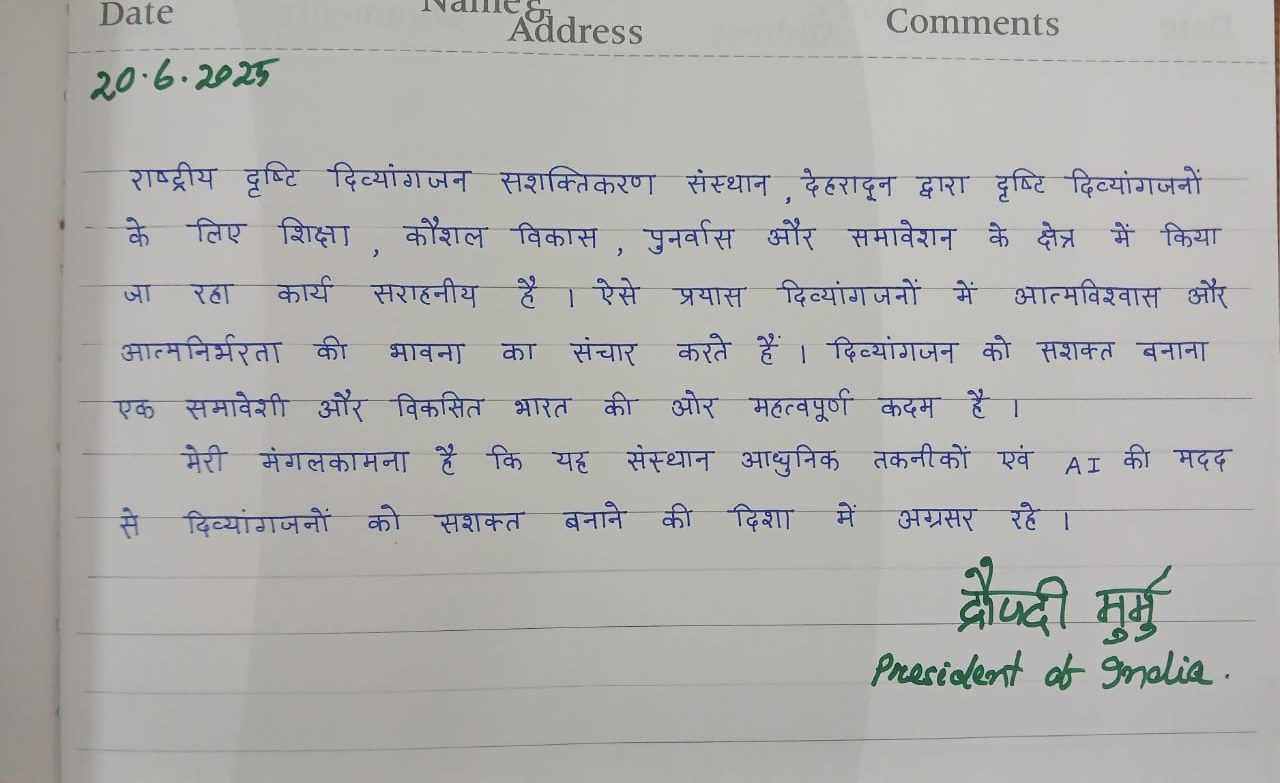 Date Name & Address Comments
20.6.2025
राष्ट्रीय दृष्टि दिव्यांगजन सशक्तिकरण संस्थान, देहरादून द्वारा दृष्टि दिव्यांगजनों
के लिए शिक्षा, कौशल विकास, पुनर्वास और समावेशन के क्षेत्र में किया
जा रहा कार्य सराहनीय है । ऐसे प्रयास दिव्यांगजनों में आत्मविश्वास और
आत्मनिर्भरता की भावना का संचार करते हैं । दिव्यांगजन को सशक्त बनाना
एक समावेशी और विकसित भारत की ओर महत्वपूर्ण कदम है ।
मेरी मंगलकामना है कि यह संस्थान आधुनिक तकनीकों एवं AI की मदद
से दिव्यांगजनों को सशक्त बनाने की दिशा में अग्रसर रहे ।
द्रौपदी मुर्मु
President of India.